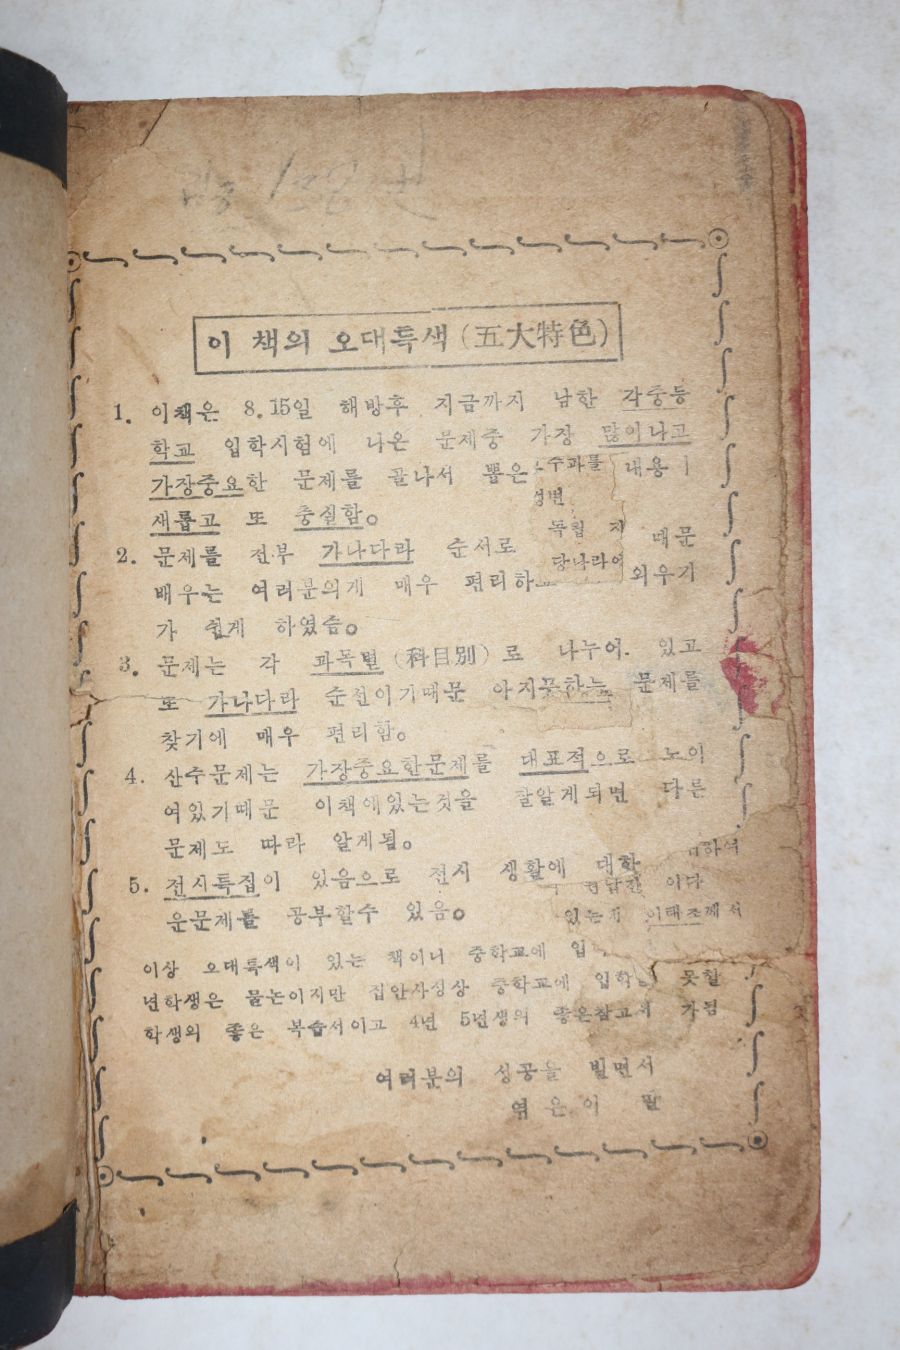 이 책의 오대특색(五大特色)
1. 이책은 8.15일 해방후 지금까지 남한 각중등
학교 입학시험에 나온 문제중 가장 많이나고
가장중요한 문제를 골나서 뽑은 수과를 내용
성변
새롭고 또 충실함。
목 지
2. 문제를 전부 가나다라 순서로 때문
당나라에
배우는 여러분의게 매우 편리하 외우기
가 쉽게 하였슴。
3. 문제는 각 과목별(科目別)로 나누어. 있고
또 가나다라 순인이기때문 아지못하는 문제를
찾기에 매우 편리함。
4. 산수문제는 가장중요한문제를 대표적으로 노이
여있기때문 이책에있는것을 잘알게되면 다른
문제도 따라 알게됨。
하여
5. 전시특집이 있음으로 전시 생활에 대한
이다
운문제를 공부할수 있음。
있는데 이태조께서
이상 오대특색이 있는 책이니 중학교에 입
년학생은 물논이지만 집안사정상 중학교에 입학 못할
학생의 좋은 복습서이고 4년 5년생의 좋은참고서 가됨
여러분의 성공을 빌면서
엮은이 필